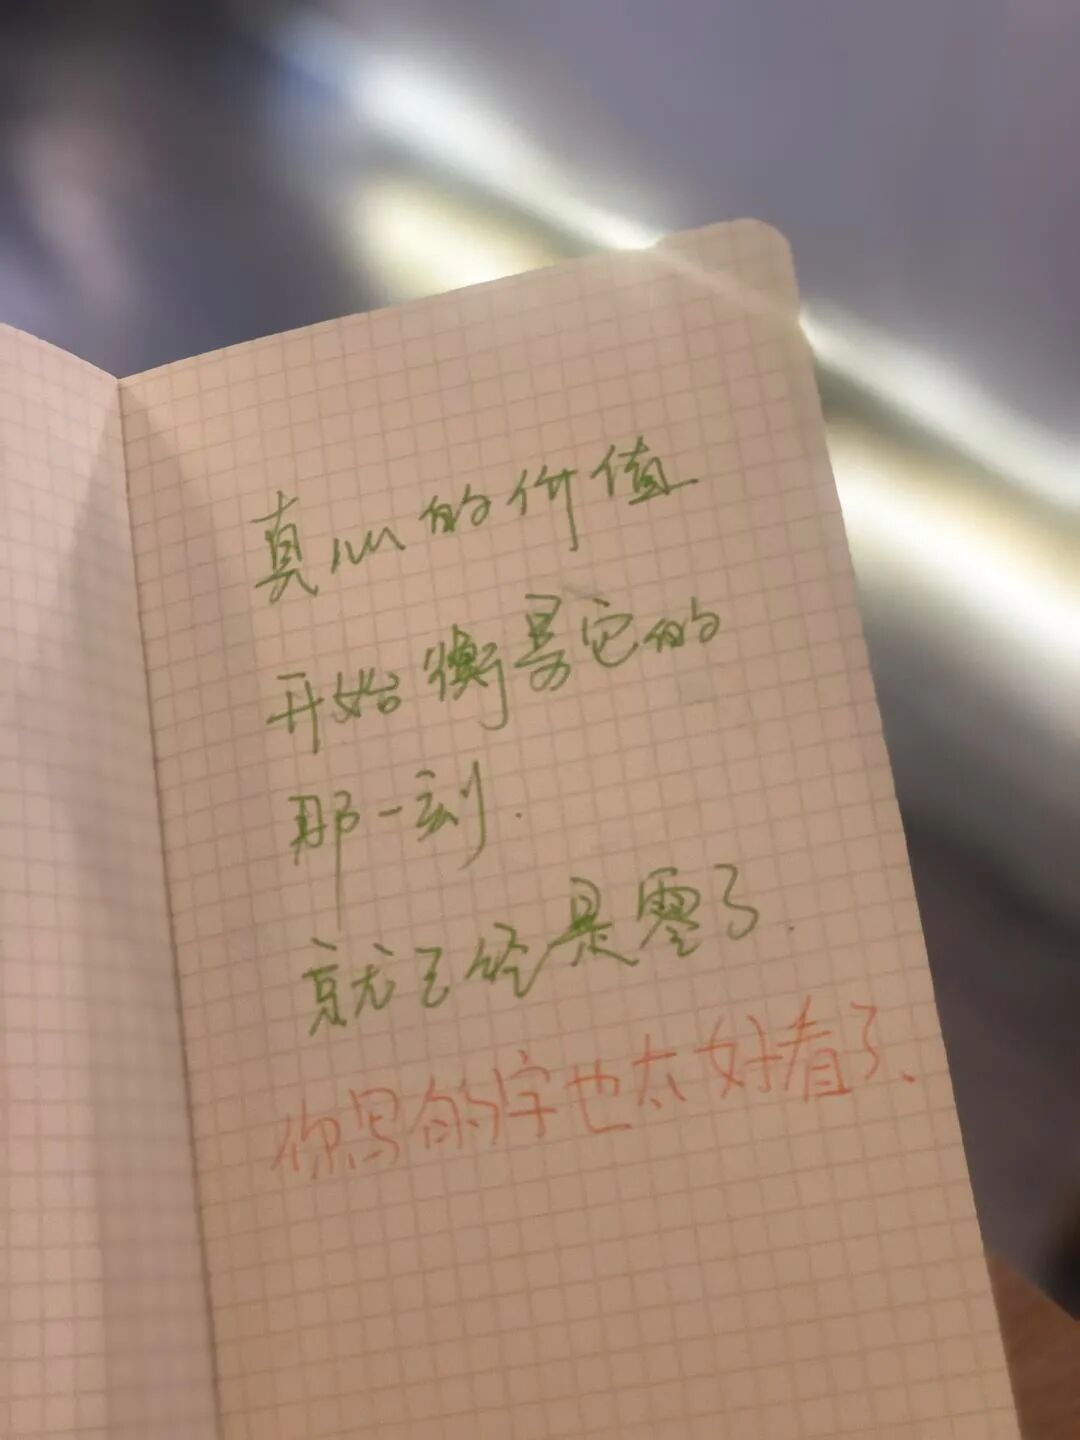 真心的价值
开始衡量它的
那一刻.
就已经是零了.
你写的字也太好看了、